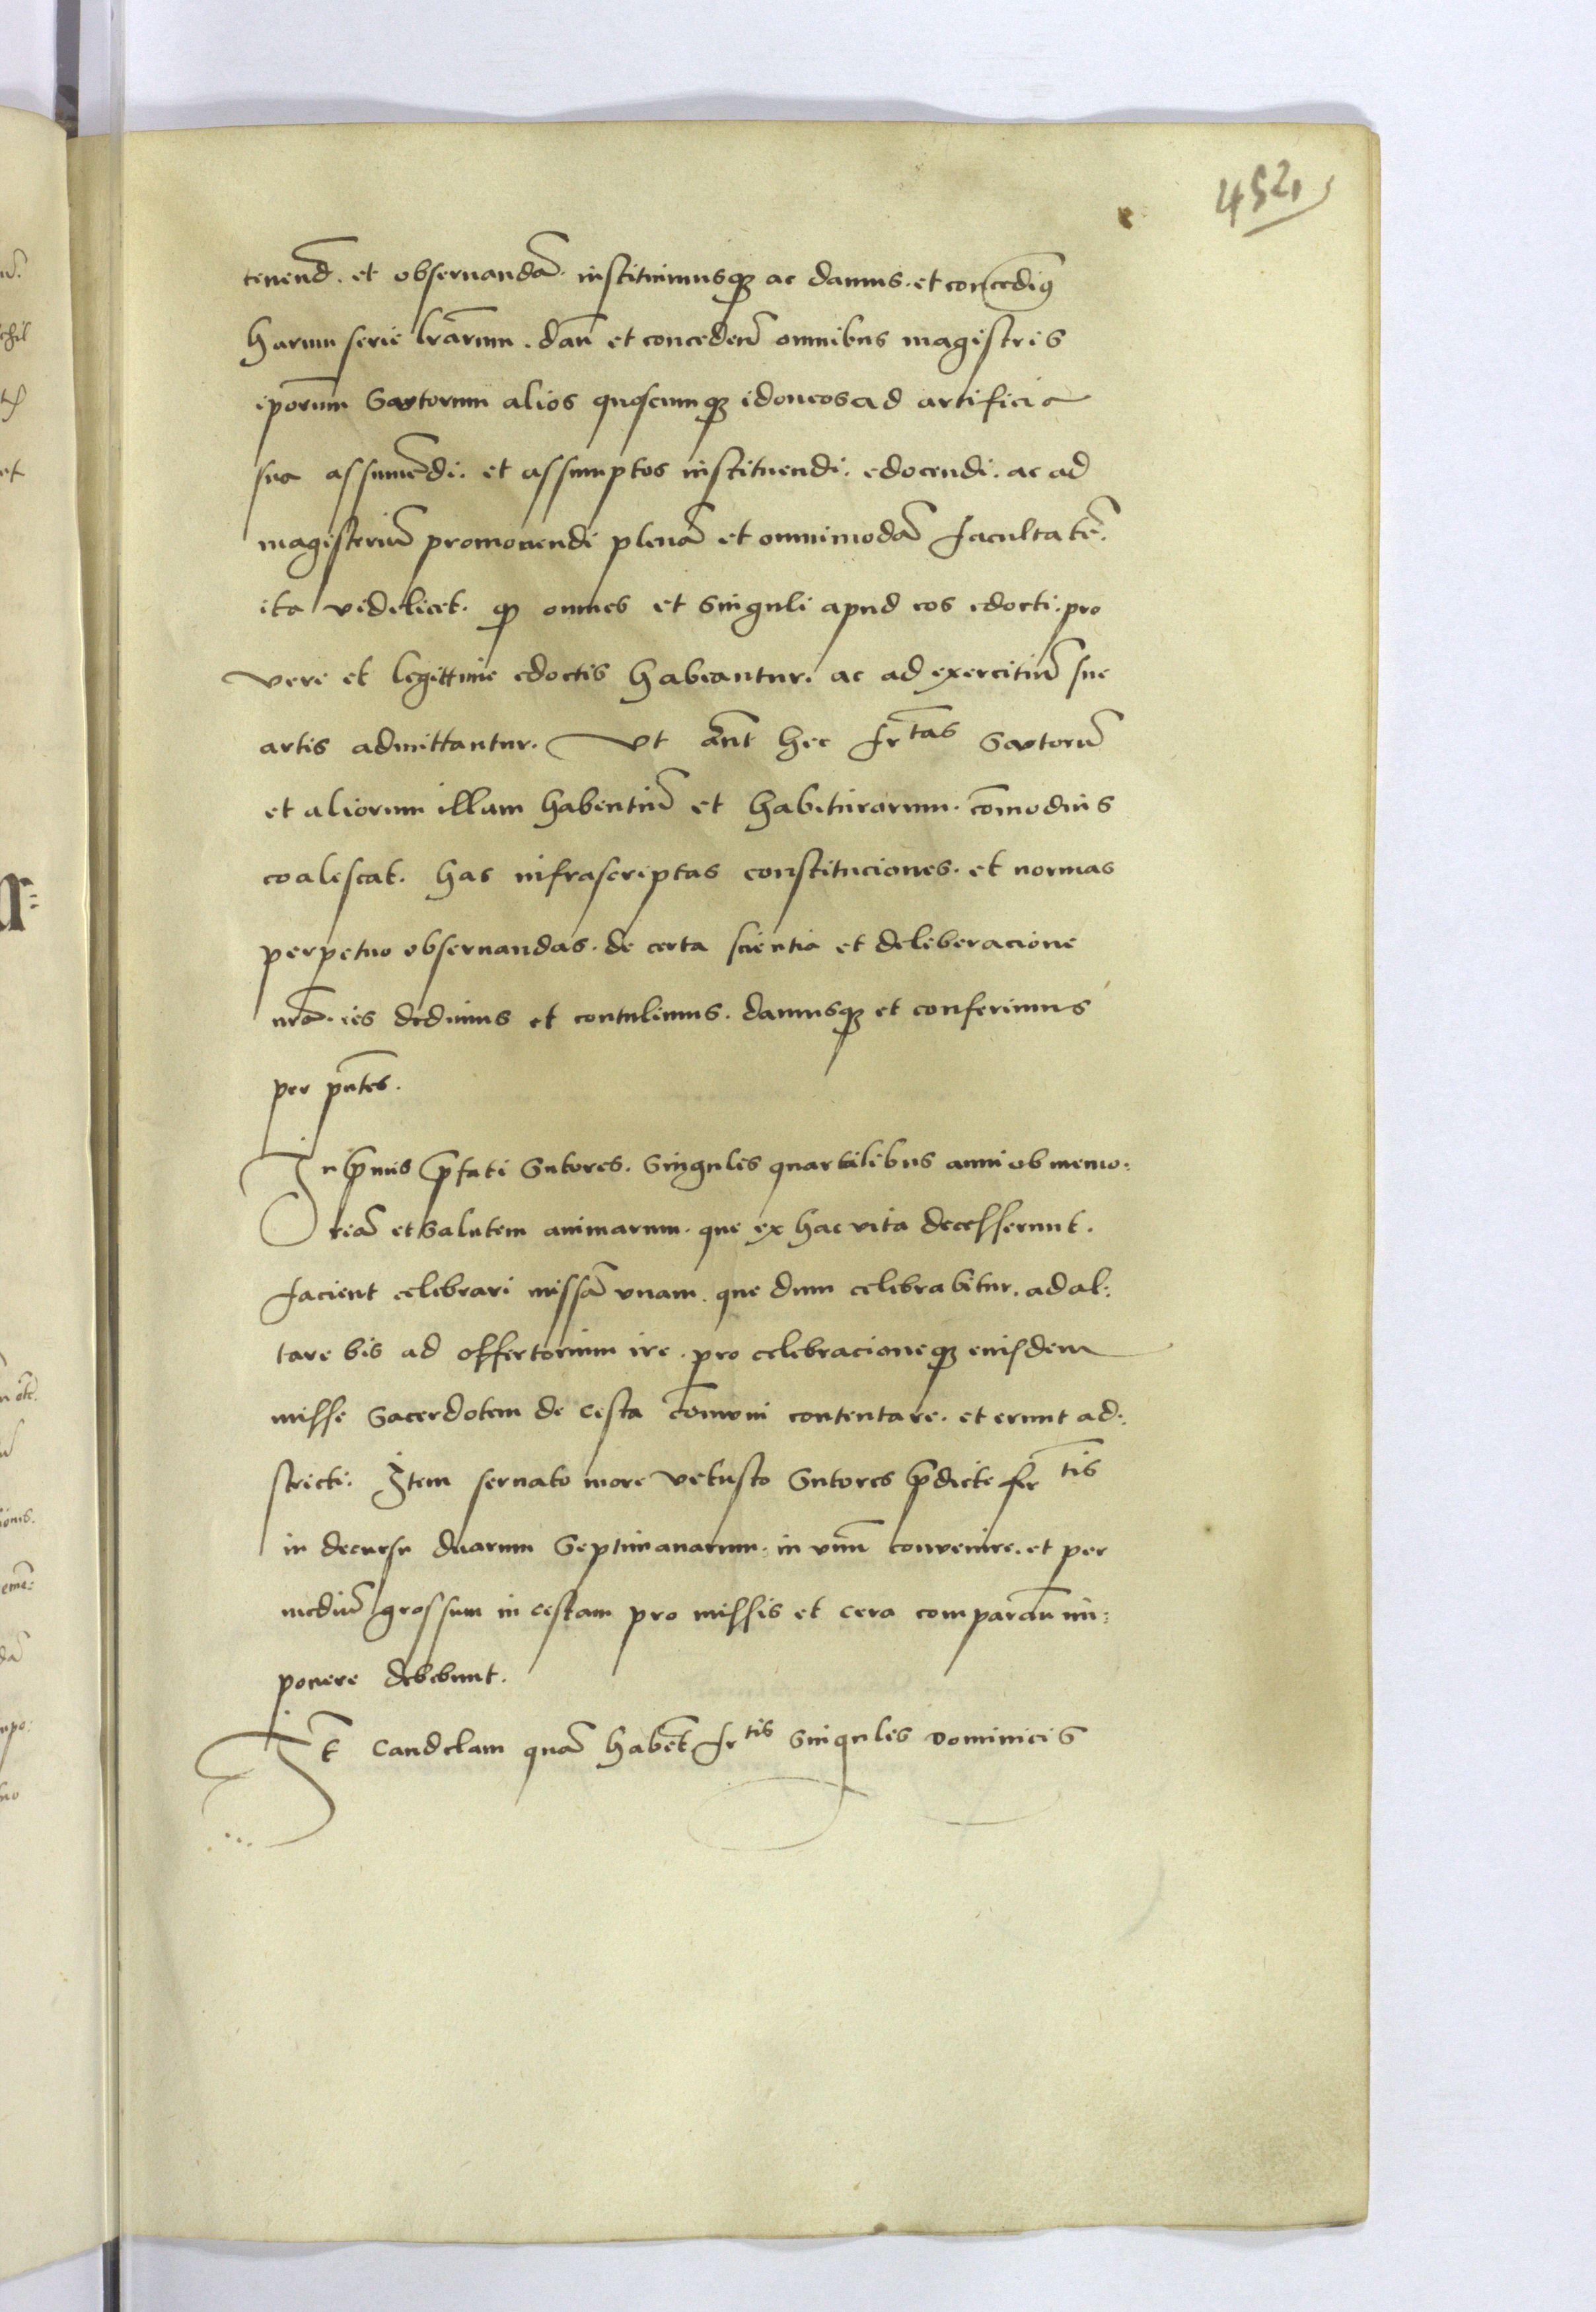 452
tenend̄. et obseruandā. instituimusqȝ ac damus. et concedimꝰ
harum serie lrārum. dan̄ et conceden̄ omnibus magistris
ipōrum Sartorum alios quoscumqȝ idoneos ad artificia
sua assumēdi. et assumptos instituendi. edocendi. ac ad
magisteriū promouendi plenā et omnimodā facultatē.
ita videlicet. qȝ omnes et Singuli apud eos edocti. pro
vere et legittime edoctis habeantur. ac ad exercitiū sue
artis admittantur. Vt aūt hec fr̄tas Sartorū
et aliorum illam habentiū et habiturorum. cōmodius
coalescat. has infrascriptas constituciones. et normas
perpetuo obseruandas. de certa scientia et deliberacione
nrā. eis dedimus et contulimus. damusqȝ et conferimus
per pn̄tes.
Inp̄mis p̄fati Sutores. Singulis quartalibus anni ob memo:
riā et Salutem animarum. que ex hac vita decesserunt.
facient celebrari missā vnam. que dum celebrabitur. ad al:
tare bis ad offertorium ire. pro celebracioneqȝ eiusdem
misse Sacerdotem de cesta cōmuni contentare. et erunt ad:
stricti. Item seruato more vetusto Sutores p̄dicte fr̄tis
in decursu duarum Septimanarum. in vnū conuenire. et per
mediū grossum in cestam pro missis et cera comparan̄ im:
ponere debebunt.
It̄ Candelam quā habēt fr̄tis Singulis Dominicis